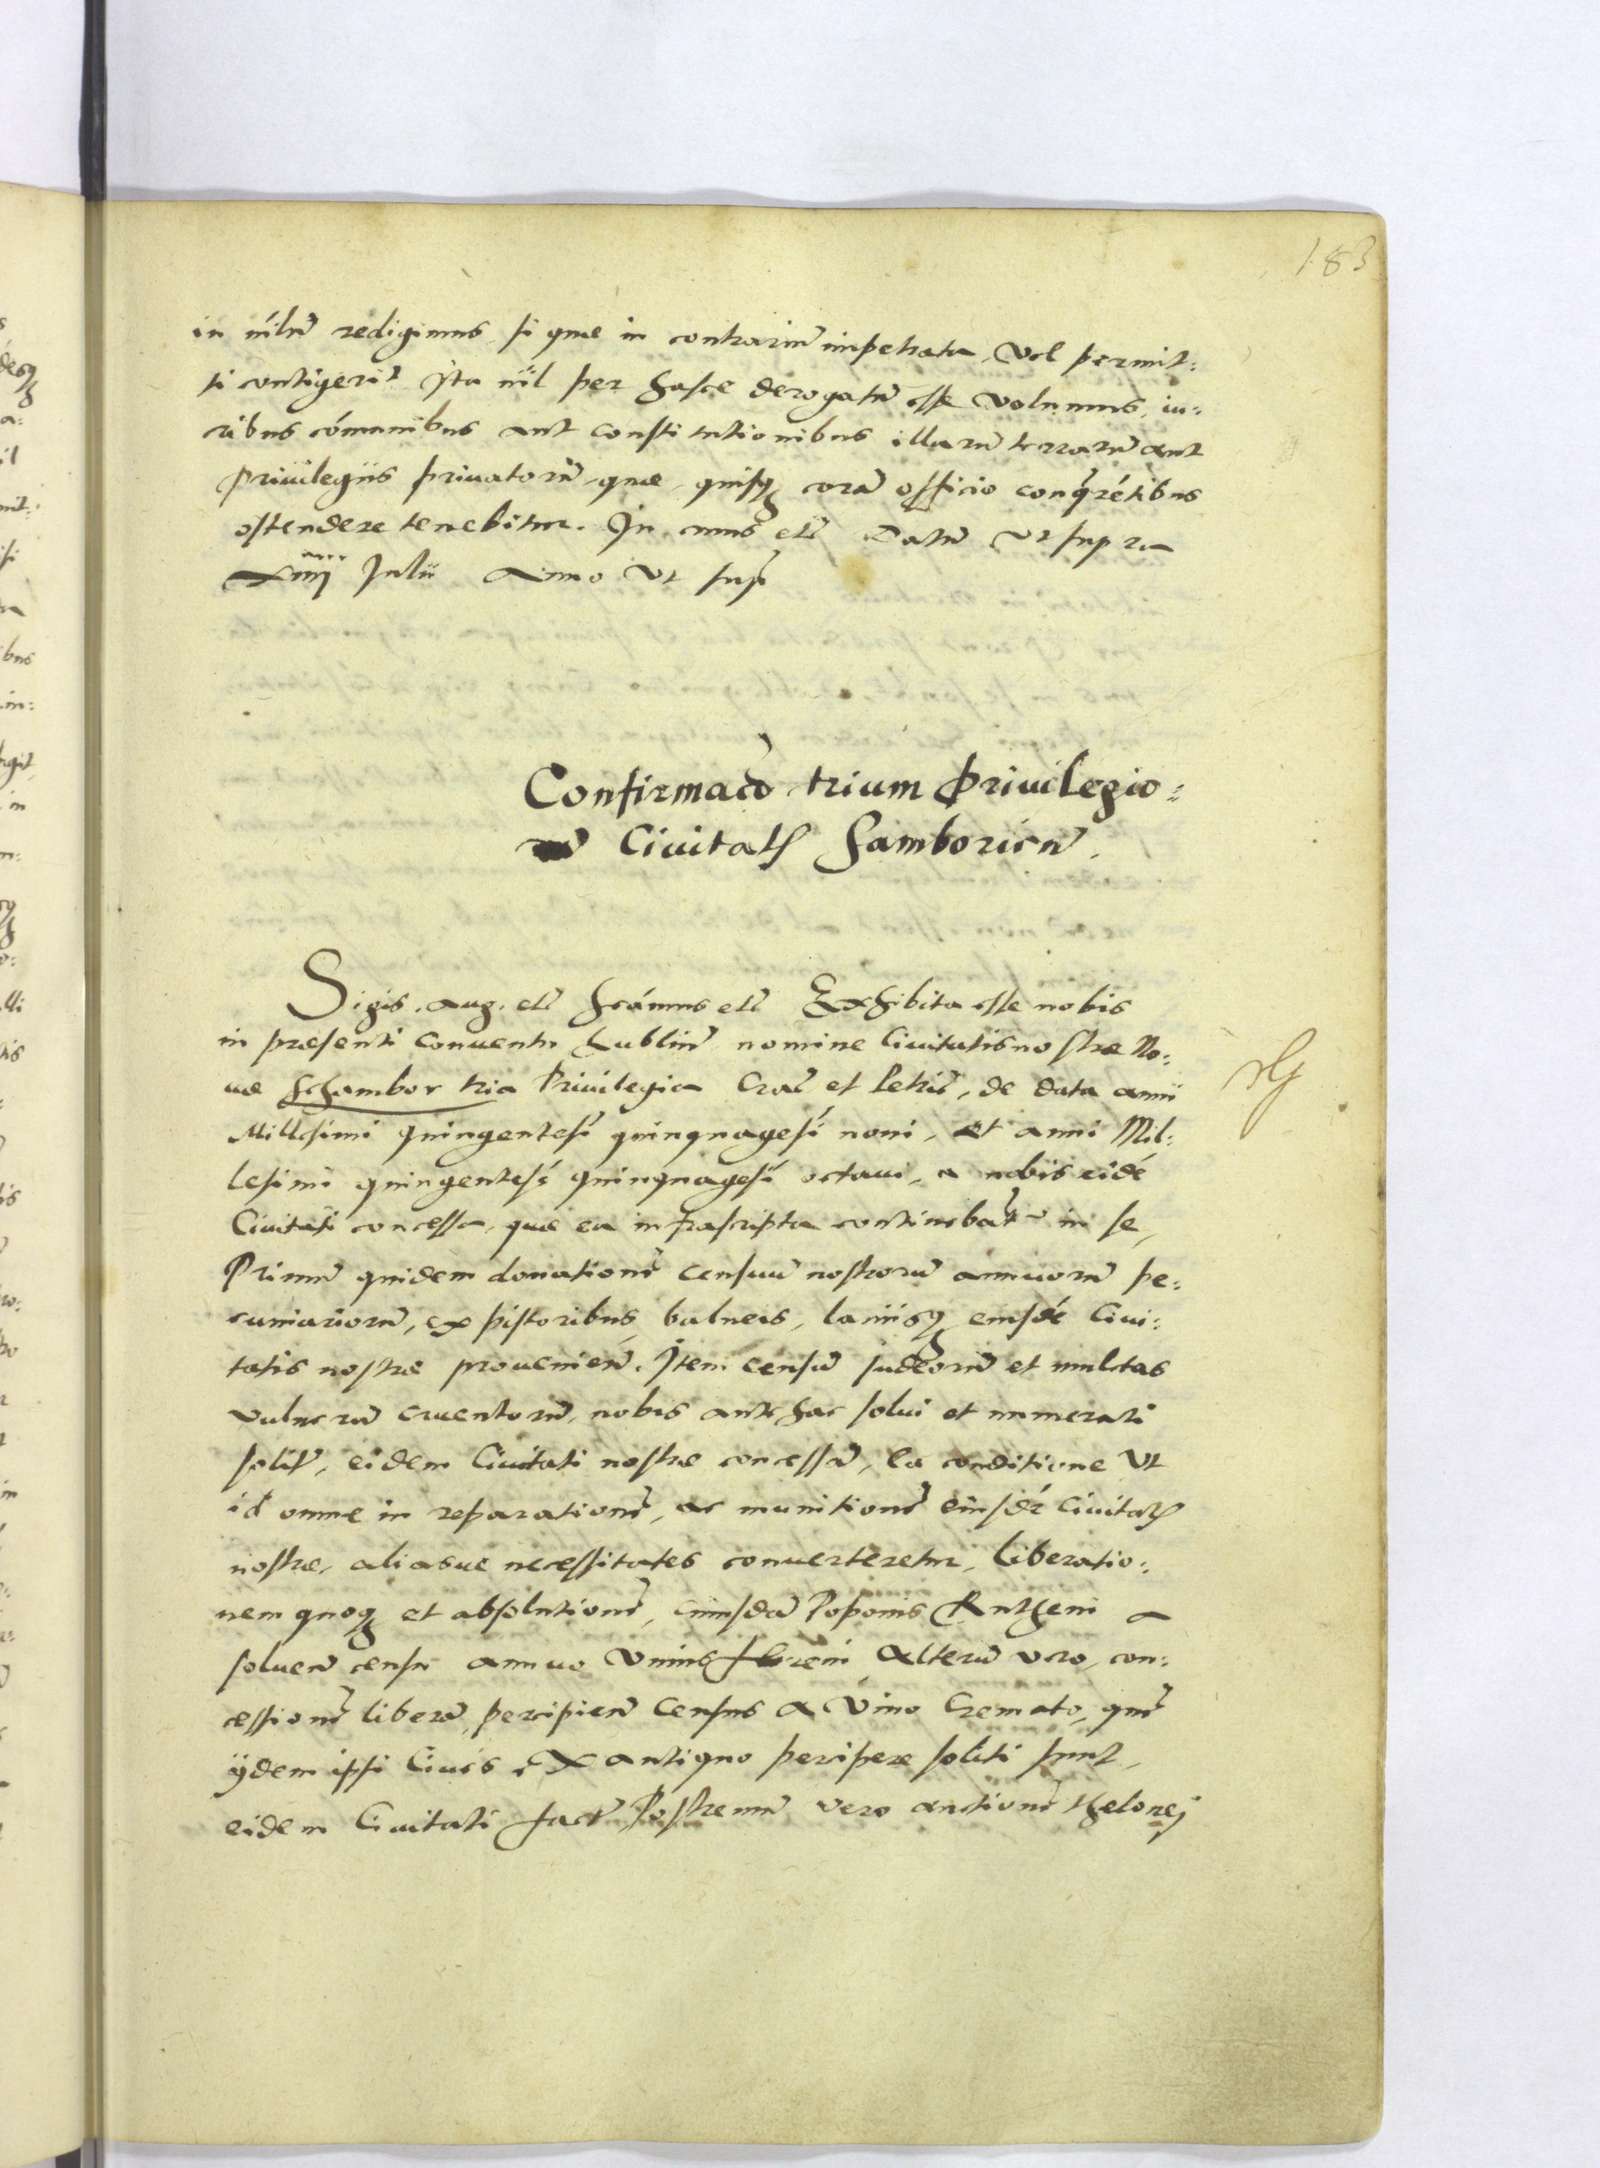 183
in nilũ redigimus si quæ in contrariũ impetrata, vel permit:
ti contigerit Ita nil per hasce derogatũ esse volumus, iu:
ribus cómunibus aut constitutionibus illarũ terrarũ aut
priuilegiis priuatorũ, quæ, quisq corã officio
ostendere tenebitur. In cuius etc̃ Datũ Vt supra
Julii Anno Vt sup̃
Confirmac̃o trium Priuilegio:
rũ Ciuitatis Samborien̄.
Sigis. Aug. etc̃ Scámus etc̃ Exhibita esse nobis
in præsenti conuentu Lublin̄ nomine Ciuitatis nostræ No:
uæ Schambor tria Priuilegia Crac̃ et Petric̃, de data anni
Millesimi quingentesi quinquagesi noni, et anni Mil:
lesimi quingentesi quinquagesi octaui, a nobis eidé
Ciuitati concessa, quæ ea infrascripta continebãt in se,
Primũ quidem donationẽ censuũ nostrorũ annuorũ pe:
cuniariorũ, ex pistoribus, balneis, laniisq eiusdé Ciui:
tatis nostræ prouenien̄. Item censũ Judeorũ et mulctas
vulnerũ cruentorũ, nobis antehac solui et numerati
solit, eidem Ciuitati nostræ concessã, ea conditione Vt
id omne in reparationẽ, ac munitionẽ eiusdé Ciuitatis
nostræ, aliasue necessitates conuerteretur, Liberatio:
nem quoq et absolutionẽ, cuiusdã Poponis Rutheni a
soluen̄ censu annuo vnius floreni Alterũ vero, con:
cessionẽ liberã, percipien̄ census a Vino Cremato, quẽ
ijdem ipsi Ciues ex antiquo percipere soliti sunt,
eidem Ciuitati fact̃ Postremũ vero auctionẽ thelonej